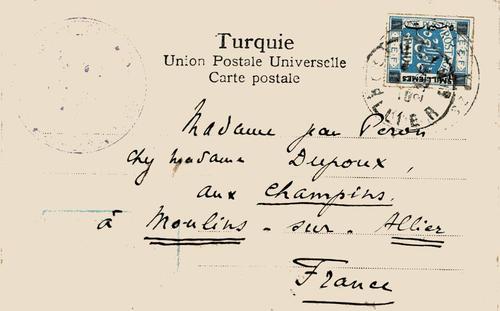 Turquie
Union Postale Universelle
Carte postale
E.E.F.
Madame par Peron
chez madame Dupoux,
aux Champins.
à Moulins - sur - Allier
France